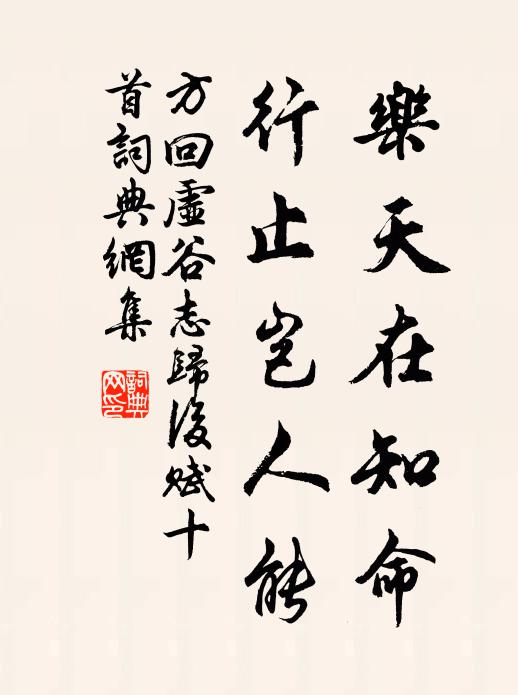 樂天在知命
行止豈人能
方回虛谷志歸後賦十
首詞典網集
詞典
网印